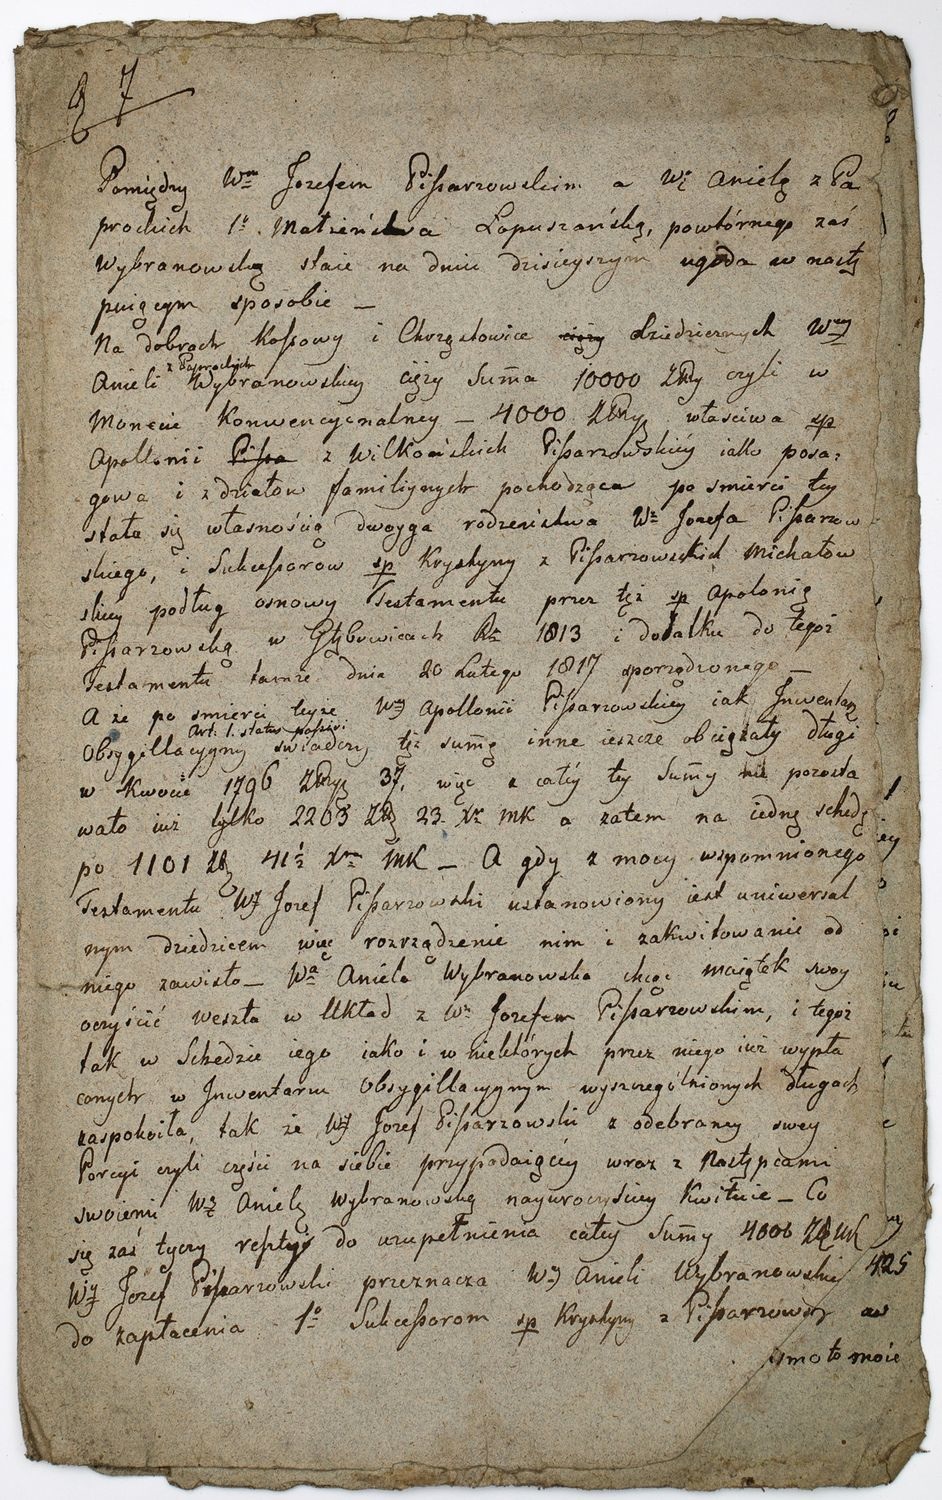 87
Pomiędzy Wm Jozefem Pissarzowskim a Wą Anielą z Pa
prockich 1o Małżeństwa Łopuszańską, powtórnego zaś
Wybranowską staie na dniu dzisieyszym ugoda w nastę
puiącym sposobie —
Na dobrach Kossowy i Chrząstowice ciąży dziedzicznych Wney
z Paprockich
Anieli Wybranowskiey ciąży Summa 10000 ZRy czyli w
Monecie Konwencyonalney — 4000 ZRy właściwa sp
Apollonii Pissa z Wilkońskich Pissarzowskiéy iako posa:
gowa i z działów familiynych pochodząca po smierci tey
stała się własnością dwoyga rodzeństwa W Jozefa Pissarzow
skiego, i Sukcessorow sp Krystyny z Pissarzowskich Michałow
skiey podług osnowy Testamentu przez też sp Apolonią
Pissarzowską w Głębowicach Rn 1813 i dodatku do tegoż
Testamentu tamże dnia 20 Lutego 1817 sporządzonego —
A że po smierci teyże Wy Apollonii Pissarzowskiey iak Inwentarz
Art. 1. status passivi
Obsygillacyyny swiadczy tęż summę inne ieszcze obciążały długi
w kwocie 1796 ZRy 37, więc z całéy tey Summy nie pozosta
wało iuż tylko 2203 ZR 23 Xr MK a zatem na iednę schedę
po 1101 ZR 41½ Xr MK — A gdy z mocy wspomnionego
Testamentu Wy Jozef Pissarzowski ustanowiony iest uniwersal
nym dziedzicem więc rozrządzenie nim i zakwitowanie od
niego zawisło — Wa Aniela Wybranowska chcąc maiątek swoy
oczyścić weszła w Układ z Wm Jozefem Pissarzowskim, i tegoż
tak w Schedzie iego iako i w niektórych przez niego iuż wypła
conych w Inwentarzu Obsygillacyynym wyszczególnionych długach
zaspokoiła, tak że Wy Jozef Pissarzowski z odebraney swey
Porcyi czyli części na siebie przypadaiącéy wraz z Następcami
swoiemi Wą Anielę Wybranowską nayuroczyściey Kwituie — Co
się zaś tyczy reszty do uzupełnienia całey Summy 4000 ZR MK
Wy Jozef Pissarzowski przeznacza Wy Anieli Wybranowskiey 425
do zapłacenia 1o Sukcessorom sp Krystyny z Pissarzowsk
ismo to moie